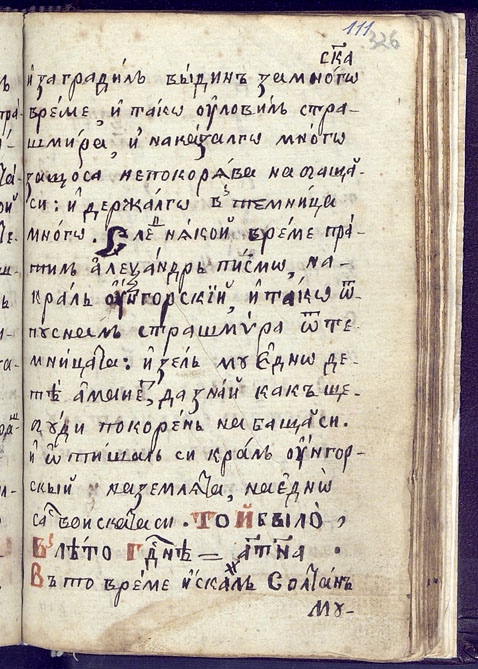 111
326
ск҃а
и҆заградил̾ выдинъ замно́гѡ
вре́ме, и҆ та́кѡ ѹ҆лови́лъ стра-
шми́ра, и҆ наказа́лгѡ мно́гѡ
защо́са непокорѧ́ва на ѻ҆аща̀-
си: и҆ держа́лгѡ въ темни́ца
мно́гѡ. Слеⷣ нѧ́кой вре́ме пра́-
тилъ алеѯа́ндръ писмо̀, на-
кра́лъ ѹ҆нгорскїй, и҆ та́кѡ ѿ-
пуснемъ страшмѵ́ра ѿ те-
мница́та: и҆ зе́лъ му є҆дно̀ де-
тѣ̀ а҆мане́т, да зна́й какъ ще-
бу́ди покоре́нъ на баща̀си.
и҆ ѿти́шалъ си кра́лъ ѹ҆нгор-
скый наземлѧ́та, на є҆дно̀
са воиска́таси. То́й было̀,
въ лѣ́то гдⷭ҇нѣ = а҆тн҃а.
Въ то вре́ме и҆ска́лъ Солта́нъ
Му-